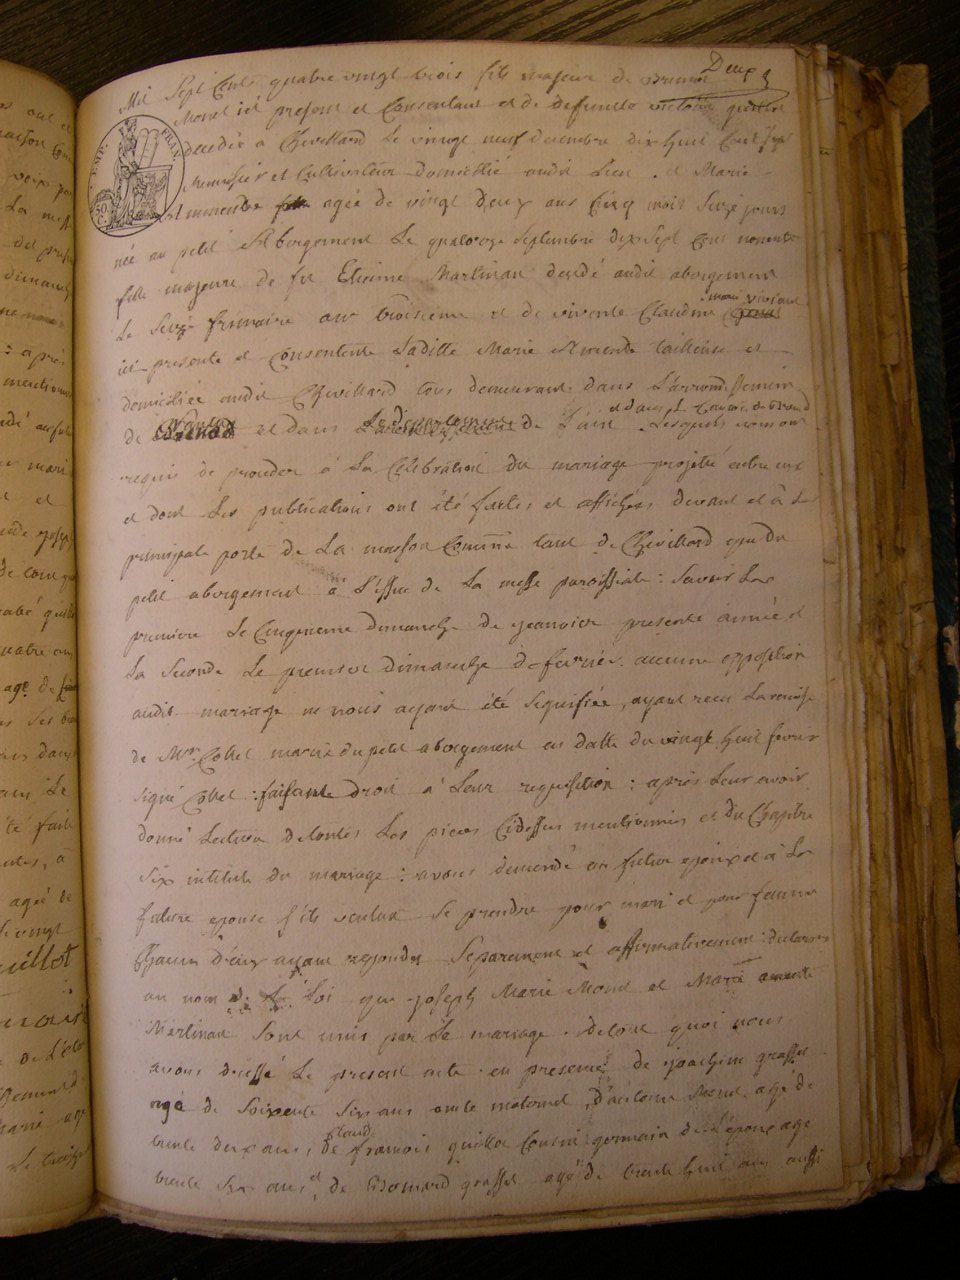 Deux
Mil Sept Cent quatre vingt trois fils majeur de
Monet ici present et Consentant et de deffunte victoire
decedée à Chevillard Le vingt neuf decembre dix huit Cent Sept
EMP. FRAN.
50 C.
et Cultivateur domicilié audit Lieu . et Marie
agée de vingt deux ans Cinq mois Seize jours
née au petit Abergement Le quatorze Septembre dix Sept Cent nonente
fille majeure de fu Etienne Martinan decedé audit abergement
Le Seize frimaire an troisieme et de vivente Claudine
marie viviand
ici presente et Consentente Laditte Marie tailleuse et
domiciliée audit Chevillard tous demeurant dans L'arrondissement
de et dans Le departement de L'ain . Lesquels nous ont
requis de proceder à La Celebration du mariage projetté entre eux
et dont Les publications ont été faites et affichées devant et à La
principale porte de La maison Commune tant de Chevillard que du
petit abergement à L'issue de La messe paroissiale : Savoir La
premiere Le Cinquieme dimanche de jeanvier presente année et
La Seconde Le premier dimanche de fevrier . aucune opposition
audit mariage ne nous ayant été Signifiée , ayant recu La remise
de Mr. Collet maire du petit abergement en datte du vingt huit fevrier
Signé Collet : faisante droit à Leur requisition : apres Leur avoir
donné Lecture de toutes Les pieces Cidessus mentionnées et du Chapitre
Six intitulé du mariage : avons demandé au futur epoux et à La
future epouse S'ils veulent Se prendre pour mari et pour femme
Chacun d'eux ayant repondu Separement et affirmativement : declarons
au nom de La Loi que joseph Marie Monet et Marie
Martinan Sont unis par Le mariage . de tout quoi nous
avons dressé Le present acte en presence de joachim grasset
agé de Soixente Six ans oncle maternel , d'antoine Monet agé de
trente deux ans , de francois guillot Cousin germain de L'epoux age
Claude
trente Six ans et de Bernard grasset agé de trente huit ans aussi